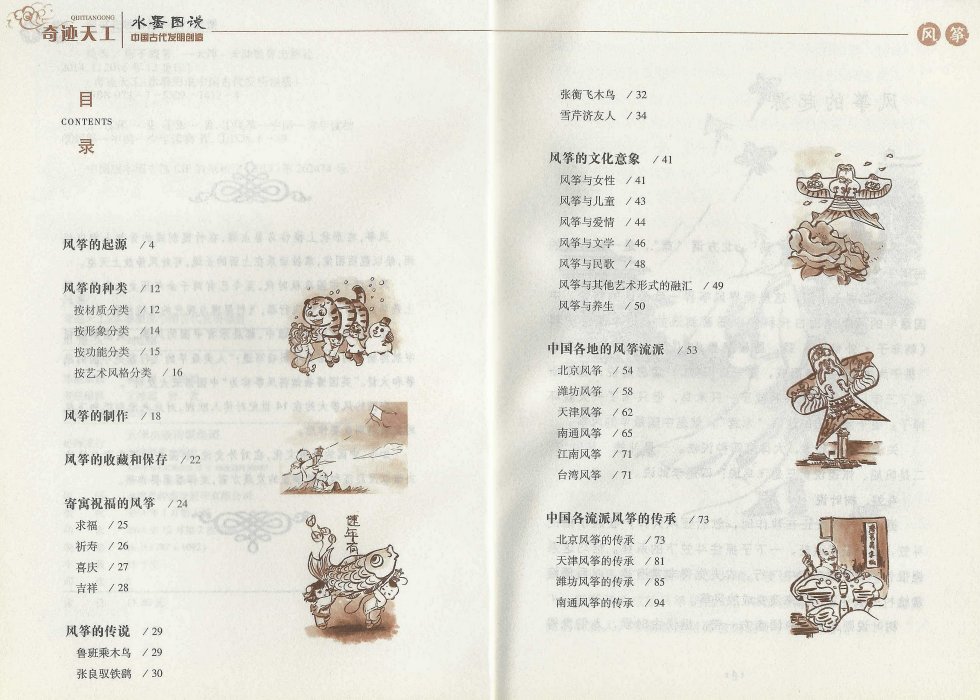 QIJITIANGONG
奇迹天工
水墨图说
中国古代发明创造
风筝
目
CONTENTS
录
风筝的起源 / 4
风筝的种类 / 12
按材质分类 / 12
按形象分类 / 14
按功能分类 / 15
按艺术风格分类 / 16
风筝的制作 / 18
风筝的收藏和保存 / 22
寄寓祝福的风筝 / 24
求福 / 25
祈寿 / 26
喜庆 / 27
吉祥 / 28
连年有
风筝的传说 / 29
鲁班乘木鸟 / 29
张良驭铁鹞 / 30
张衡飞木鸟 / 32
雪芹济友人 / 34
风筝的文化意象 / 41
风筝与女性 / 41
风筝与儿童 / 43
风筝与爱情 / 44
风筝与文学 / 46
风筝与民歌 / 48
风筝与其他艺术形式的融汇 / 49
风筝与养生 / 50
中国各地的风筝流派 / 53
北京风筝 / 54
潍坊风筝 / 58
天津风筝 / 62
南通风筝 / 65
江南风筝 / 71
台湾风筝 / 71
中国各流派风筝的传承 / 73
北京风筝的传承 / 73
天津风筝的传承 / 81
潍坊风筝的传承 / 85
南通风筝的传承 / 94